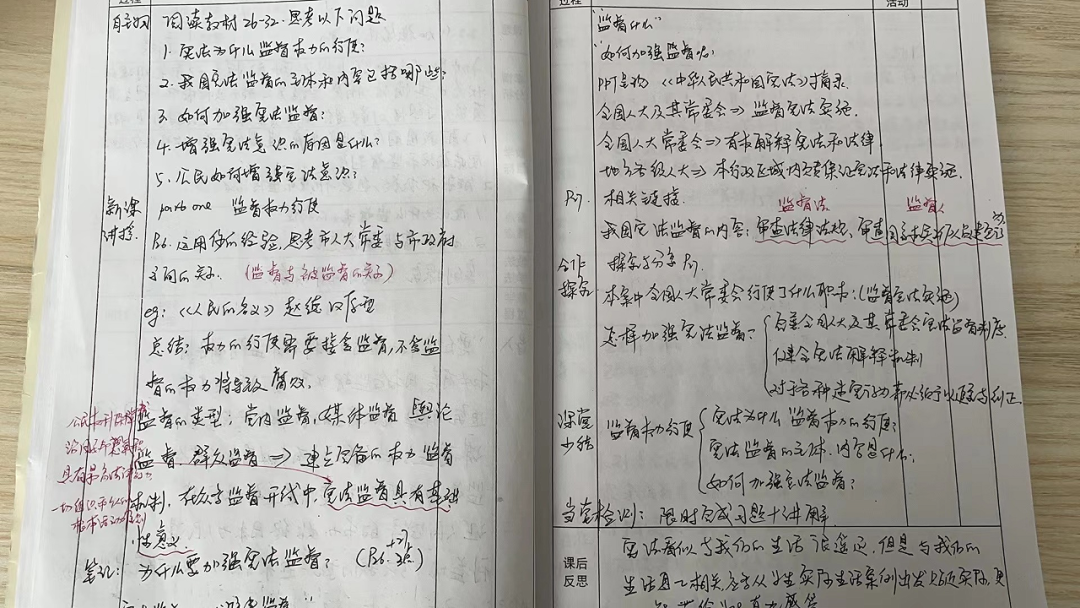 过程
自主预习
阅读教材26-32.思考以下问题
1. 宪法为什么监督权力的行使?
2. 我国宪法监督的主体和内容包括哪些?
3. 如何加强宪法监督?
4. 增强宪法意识的原因是什么?
5. 公民如何增强宪法意识?
新课讲授
part one 监督权力行使
P26. 运用你的经验,思考市人大常委与市政府
之间的关系. (监督与被监督的关系)
eg: 《人民的名义》赵德汉
总结: 权力的行使需要接受监督,不受监
督的权力将导致腐败.
监督的类型: 党内监督, 媒体监督 舆论
监督、群众监督 ⇒ 建立完备的权力监督
机制, 在众多监督形式中, 宪法监督具有基础
性意义
具有最高法律
一切组织和个人的
根本活动准则
笔记: 为什么要加强宪法监督?
过程
活动
"监督什么"
"如何加强监督呢"
PPT呈现 《中华人民共和国宪法》摘录.
全国人大及其常委会⇒ 监督宪法实施.
全国人大常委会⇒有权解释宪法和法律
地方各级人大⇒ 本行政区域内负责保证宪法和法律实施.
相关链接.
监督法
监督人
我国宪法监督的内容: 审查法律法规、审查国家
合作探究
探究与分享
本案中全国人大常委会行使了什么职权: (监督宪法实施)
怎样加强宪法监督?
完善全国人大及其常委会宪法监督制度
健全宪法解释机制
对于各种违宪行为都必须予以追究与纠正
课堂小结
监督权力行使
宪法为什么监督权力的行使?
宪法监督的主体、内容是什么.
如何加强宪法监督?
当堂检测: 限时完成习题+讲解
课后
反思
宪法看似与我们的生活很遥远,但是与我们的
生活息息相关